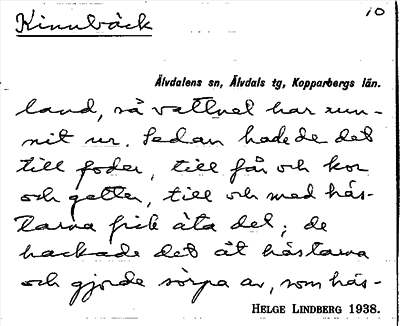 Kinnbäck
10
Älvdalens sn, Älvdals tg, Kopparbergs län.
land, så vattnet har run-
nit ur. Sedan hade de det
till foder, till får och kor
och getter, till och med häs-
tarna fick äta det; de
hackade det åt hästarna
och gjorde sörpa av, som häs-
HELGE LINDBERG 1938.